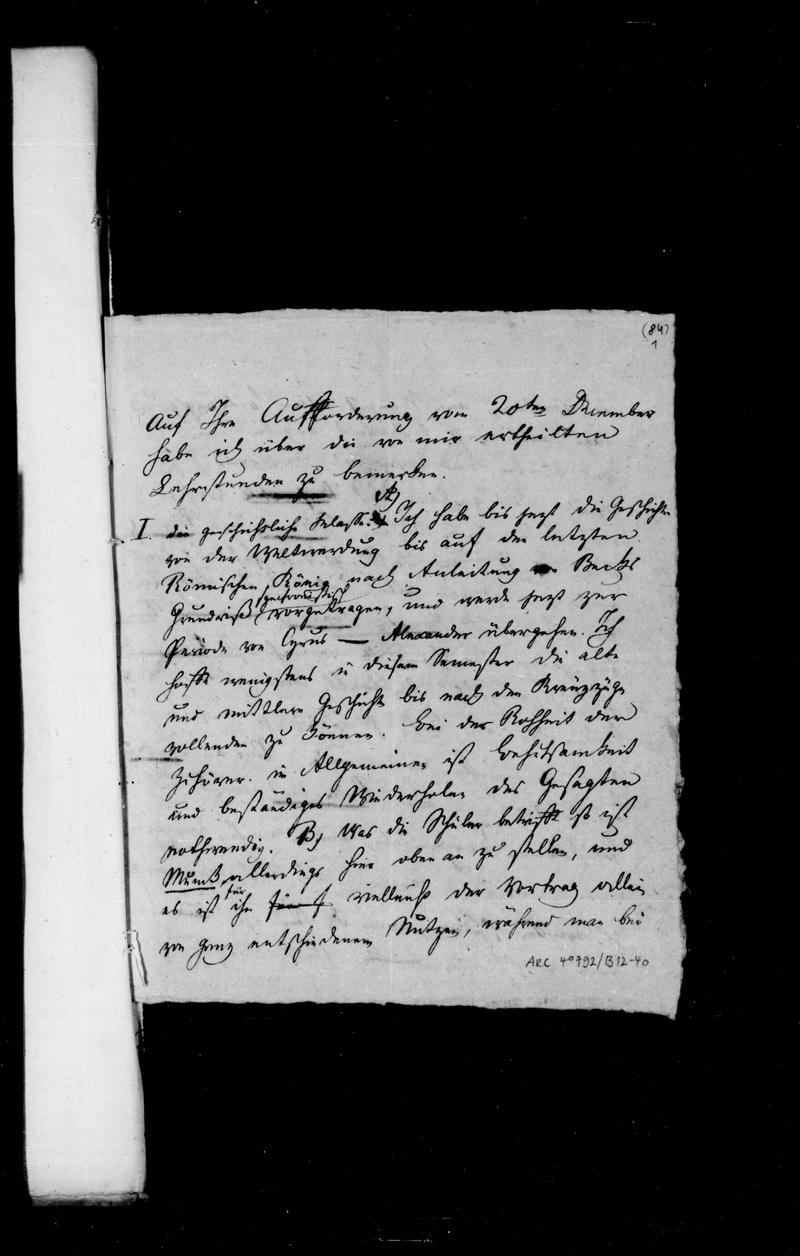 (84)
1
Auf Ihre Aufforderung vom 20ten December
habe ich über die von mir ertheilten
Lehrstunden zu bemerken.
I. die geschichtliche Klasse. A) Ich habe bis jezt die Geschichte
von der Weltwerdung bis auf den letzten
Römischen König nach Anleitung von Becks
Grundriß vorgetragen, und werde jezt zur
Periode von Cyrus — Alexander übergehen. Ich
hoffe wenigstens in diesem Semester die alte
und mittlere Geschichte bis nach den Kreuzzügen
vollenden zu können. bei der Rohheit der
Zuhörer im Allgemeinen ist behutsamkeit
und beständiges Wiederholen des Gesagten
nothwendig. B) Was die Schüler betrifft so ist
Munk allerdings hier oben an zu stellen, und
es ist für ihn vielleicht der Vortrag allein
von ganz entschiedenem Nutzen, während man bei
ARC 4°792/B12-40